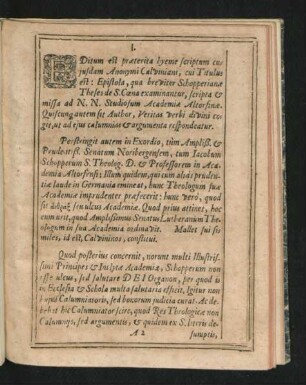 I.
EDitum est præterita hyeme scriptum cu-
jusdam Anonymi Calviniani, cui Titulus
est: Epistola, qua breviter Schopperianæ
Theses de S. Cœna examinantur, scripta &
missa ad N. N. Studiosum Academiæ Altorfinæ.
Quicunq; autem sit Author, Veritas verbi divini co-
git, ut ad ejus calumnias & argumenta respondeatur.
Perstringit autem in Exordio, tùm Ampliss. &
Prudentiss. Senatum Noribergensem, tum Jacobum
Schopperum S. Theolog. D. & Professorem in Aca-
demia Altorfensi; Illum quidem, qui cum aliàs pruden-
tiæ laude in Germania emineat, hunc Theologum suæ
Academiæ imprudenter præfecerit: hunc verò, quod
sit seu ulcus Academiæ. Quod prius attinet, hoc
eum urit, quod Amplissimus Senatus Lutheranum Theo-
logum in sua Academia ordinavit. Mallet sui si-
miles, id est, Calvininos, constitui.
Quod posterius concernit, norunt multi Illustris-
simi Principes & Inclytæ Academiæ, Schopperum non
esse ulcus, sed salutare DEI Organon, per quod is
in Ecclesia & Schola multa salutaria effecit. Igitur non
hujus Calumniatoris, sed bonorum judicia curat. Ac de-
bebat hic Calumniator scire, quod Res Theologicæ non
Calumniis, sed argumentis, & quidem ex S. literis de-
A 2 sumptis,